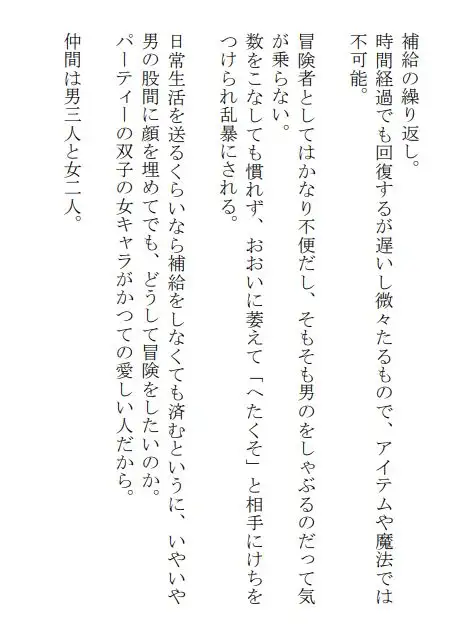 補給の繰り返し。
時間経過でも回復するが遅いし微々たるもので、アイテムや魔法では
不可能。
冒険者としてはかなり不便だし、そもそも男のをしゃぶるのだって気
が乗らない。
数をこなしても慣れず、おおいに萎えて「へたくそ」と相手にけちを
つけられ乱暴にされる。
日常生活を送るくらいなら補給をしなくても済むというに、いやいや
男の股間に顔を埋めてでも、どうして冒険をしたいのか。
パーティーの双子の女キャラがかつての愛しい人だから。
仲間は男三人と女二人。